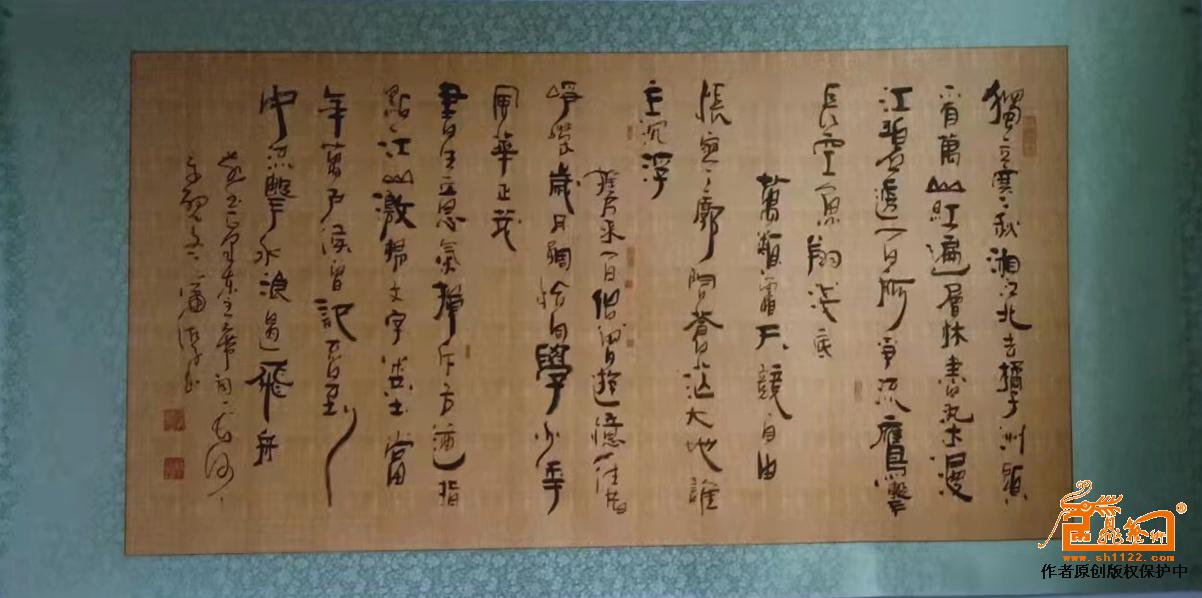 獨立寒秋湘江北去橘子洲頭
看萬山紅遍層林盡染漫
江碧透百舸爭流鷹擊
長空魚翔淺底
萬類霜天競自由
悵寥廓問蒼茫大地誰
主沉浮
攜來百侶曾遊憶往昔
崢嶸歲月稠恰同學少年
風華正茂
書生意氣揮斥方遒指
點江山激揚文字糞土當
年萬戶侯曾記否到
中流擊水浪遏飛舟
www.sh1122.com
作者原创版权保护中